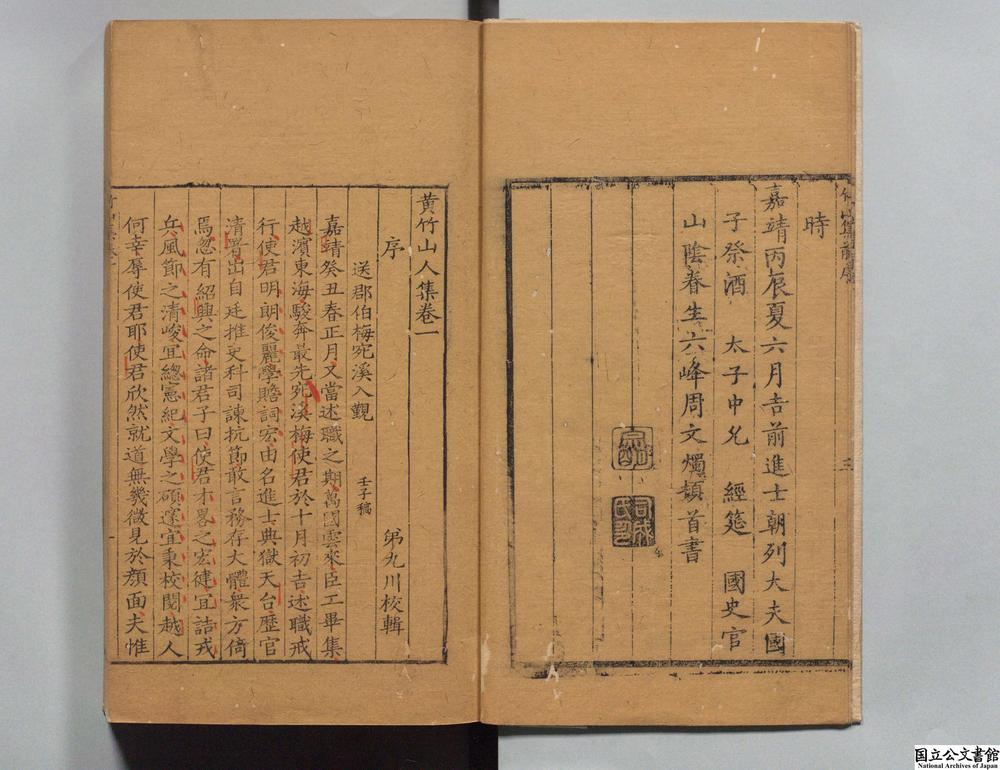 時
嘉靖丙辰夏六月吉前進士朝列大夫國
子祭酒　太子中允　經筵　國史官
山陰眷生六峰周文燭頓首書
黃竹山人集卷一
序
第九川校輯
送郡伯梅宛溪入覲　壬子稿
嘉靖癸丑春正月又當述職之期萬國雲來臣工畢集
越濱東海駿奔最先宛溪梅使君於十月初吉述職戒
行使君明朗俊麗學贍詞宏由名進士典獄天台歷官
清署出自廷推吏科司諫抗節敢言務存大體衆方倚
焉忽有紹興之命諸君子曰使君才畧之宏健宜詰戎
兵風節之清峻宜總憲紀文學之碩邃宜秉校閱越人
何幸辱使君耶使君欣然就道無幾微見於顏面夫惟
国立公文書館
National Archives of Japan